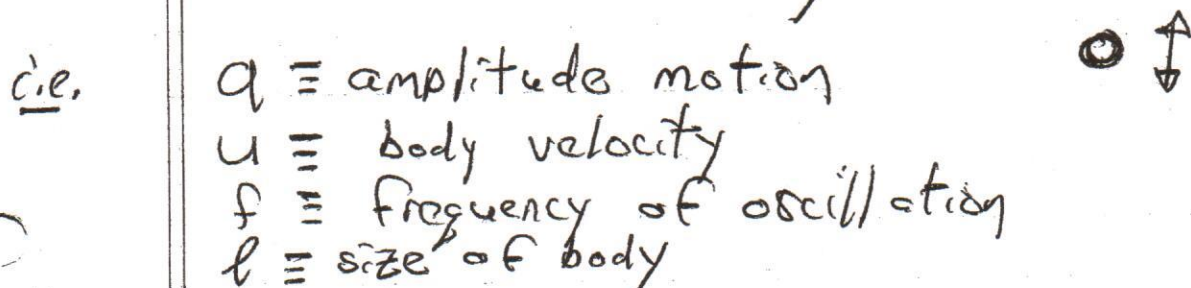 i.e. a ≡ amplitude motion
u ≡ body velocity
f ≡ frequency of oscillation
l ≡ size of body